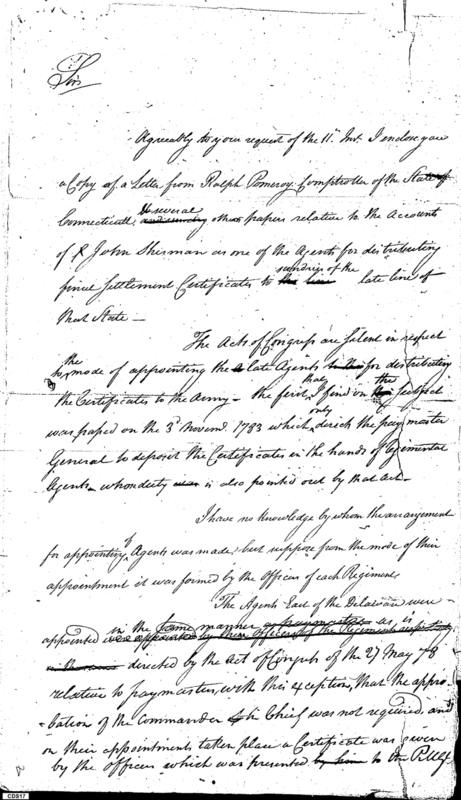 Sir
Agreeably to your request of the 11th Inst. I enclose you
a Copy of a Letter from Ralph Pomeroy Comptroller of the State of
Connecticutt, & several other papers relative to the Accounts
of John Sherman as one of the Agents for distributing
final Settlement Certificates to sundries of the late line of
that State —
The Acts of Congress are silent in respect
to the mode of appointing the late Agents for distributing
the Certificates to the Army — the first that I find on the subject
was passed on the 3d Novemr. 1783 which only directs the pay master
General to deposit the Certificates in the hands of regimental
Agents — whose duty is also pointed out by that Act —
I have no knowledge by whom the arrangement
for appointing of Agents was made, but suppose from the mode of their
appointment it was formed by the Officers of each Regiment
The Agents East of the Delaware were
appointed in the same manner as is
directed by the Act of Congress of the 27 May 78
relative to paymasters, with this exception, that the appro-
-bation of the Commander in Chief was not required, and
on their appointments taken place a Certificate was given
by the Officers which was presented to the PMG
CDS17